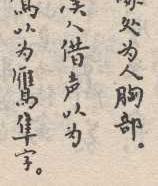 处为人胸部。
人借声以为
以为鴈隼字。